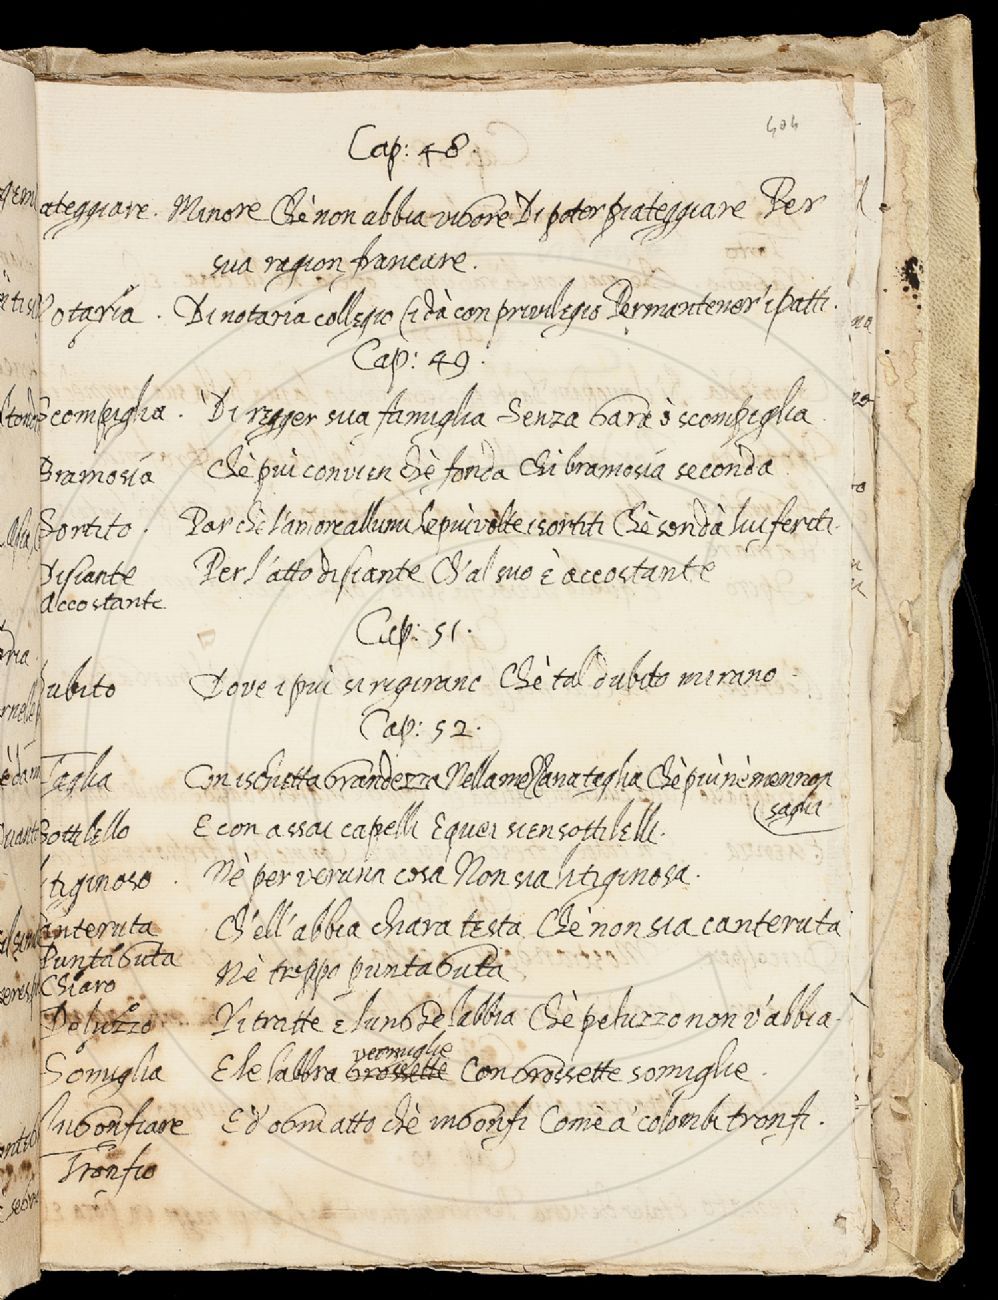 404
Cap: 48.
ateggiare. Minore Chè non abbia vigore Di poter piateggiare Per
sua ragion francare.
otaria. Di notaria collegio si dà con privilegio Per mantener i patti.
Cap: 49.
Scompiglia. Di regger sua famiglia Senza gara ò scompiglia
Bramosia Chè più convien chè fonda Chi bramosia seconda
Sortito. Par chè l'amore allumi le più volte i sortiti Chè son dà lui feriti.
Disiante Per l'atto disiante Ch'al suo è accostante
Accostante
Cap: 51.
Dubito Dove i più si rigirano Chè tal dubito mirano
Cap: 52.
Taglia Con ischietta grandezza Nella mezzana taglia Chè più nè men non
saglia
Sottilello E con assai capelli E quei sien sottilelli.
itiginoso. Nè per veruna cosa Non sia litiginosa.
Canteruta Ch'ell'abbia chiara testa Chè non sia canteruta
Puntaguta Nè troppo puntaguta
Chiaro
Peluzzo Ritratte e lunghe labbia Chè peluzzo non v'abbia.
Somiglia E le labbra grossette vermiglie Con grossette somiglie.
Ingonfiare E d'ogni atto chè ingonfi Come à colombi tronfi.
Tronfio